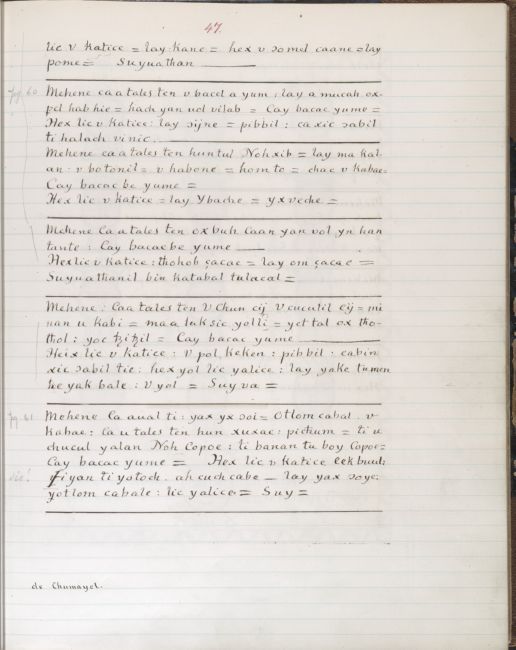 47.
lic v katice = lay kanc = hex v somel caane = lay
pome = Suyuathan
pg. 60
Mehene ca a tales ten v bacel a yum : lay a mucah ox-
pel hab hie = hach yan uol vilab = Cay bacac yume =
Hex lic v katice : lay sijne = pibbil : ca xic sabil
ti halach vinic.
Mehene ca a tales ten huntul Nohxib = lay ma kal-
an : v botonil = v habone = hom to = chac v kabae.
Cay bacac be yume =
Hex lic v katice = lay Ybache = yx veche =
Mehene Ca a tales ten ox buh Caan yan vol yn han
tante : Cay bacacbe yume
Hex lic v katice : thohob çacae = lay om çacae =
Suyuathanil bin katabal tulacal =
Mehene : Ca a tales ten V Chun cij V cucutil cij = mi
nan u kabi = ma a luksic yolli = yettal ox tho-
thol : yoc = Cay bacac yume
Heix lic v katice : v pol keken : pibbil : ca bin
xic sabil tie : hex yol lic yalice : lay yake tumen
he yak bale : v yol = Suy va =
pg. 61
Mehene Ca a ual ti : yax yx soi = Otlom cabal . v
kabae : Ca u tales ten hun xuxac : pichum = ti u
chucul yalan Noh Copoe : ti banan tu boy Copoe =
Cay bacac yume = Hex lic v katice eek buul :
sic!
yan ti yotoch . ah cuch cabe — lay yax soye :
yotlom cabale : lic yalice = Suy =
de Chumayel.